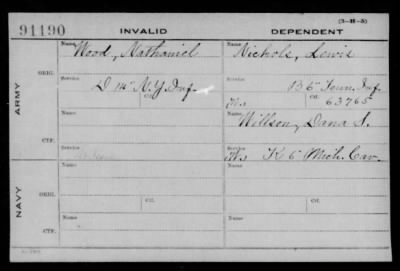 (3-H-5)
91190 INVALID DEPENDENT
ARMY
ORIG.
Name, Wood, Nathaniel
Name, Nichols, Lewis
Service D 14" N.Y. Inf.
Service B 6" Tenn. Inf.
Ctf. 63765
CTF.
Name
Name Willson, Dana S.
Service
Service K 6" Mich. Cav.
NAVY
ORIG.
Name
Name
Service Ctf.
Service Ctf.
CTF.
Name
Name
Service
Service